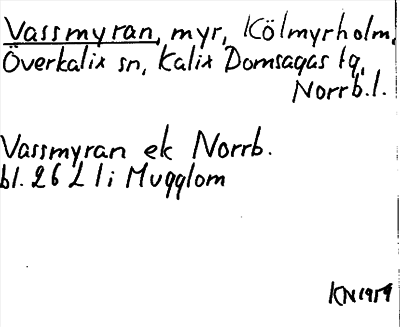 Vassmyran, myr, Kölmyrholm,
Överkalix sn, Kalix Domsagas tg,
Norrb.l.
Vassmyran ek Norrb.
bl. 26 L l i Mugglom
KN 1959